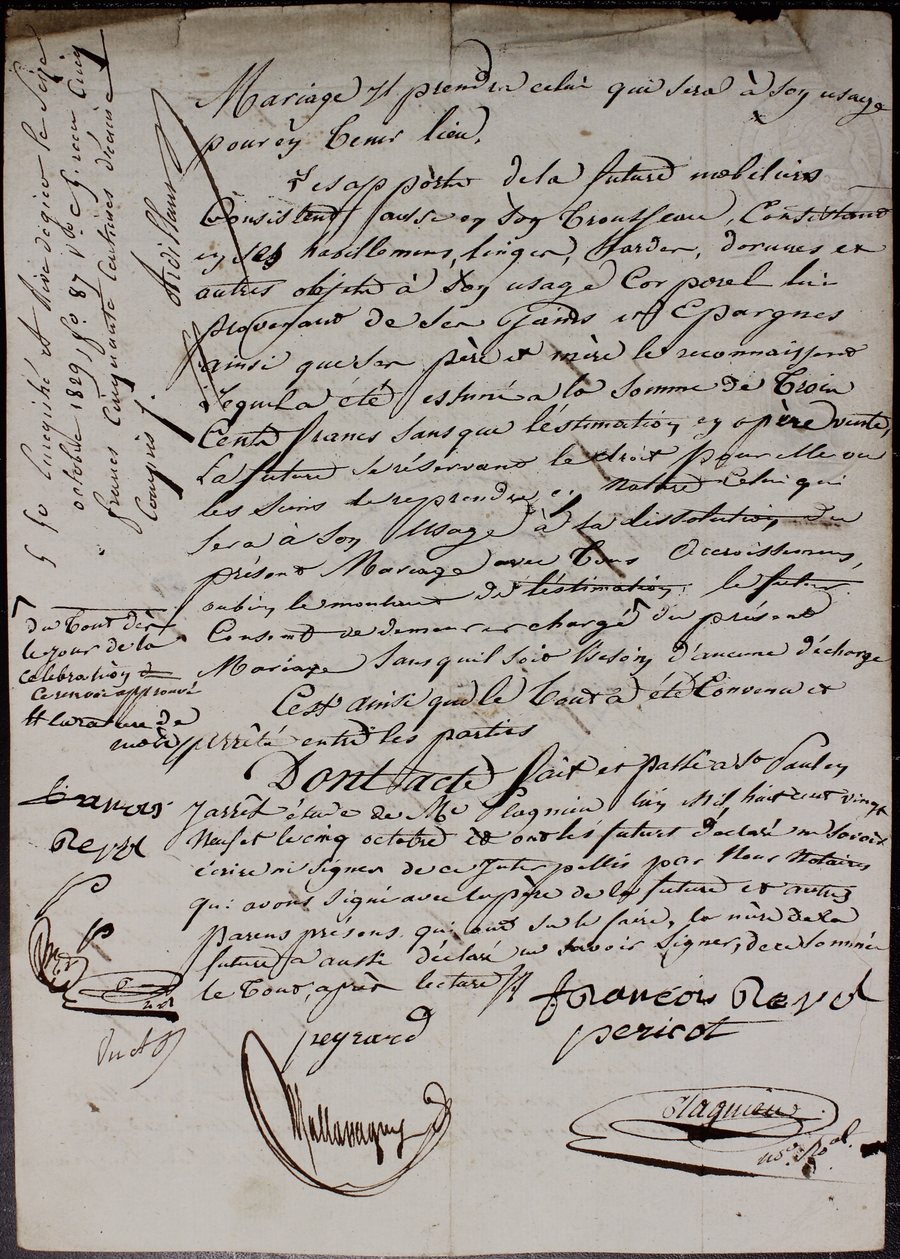 Mariage et prendre celui qui sera à son usage
pour en tenir lieu.
Les apports de la future mobeliers
Consistent aussi en son trousseau, Consistant
en ses habillemens, linges, hardes, dorures et
autres objets à son usage Corporel lui
provenant de ses Gains et Epargnes
ainsi que ses père et mère le reconnaissent
lequel a été estimé a la somme de trois
Cents francs sans que l'éstimation en opère vente,
La future se réservant le droit pour elle ou
les siens de reprendre en nature Celui qui
sera à son usage à la dissolution du
présent Mariage avec tous accroissemens,
oubien le montant de l'éstimation. le futur
Consent de demeurer chargé du présent
Mariage sans quil soit besoin d'aucune décharge
C'est ainsi que le tout a été Convenu et
arrêté entre les parties
Dont acte fait et passé a St Paul en
Jarrêt étude de Me Plagnieu, lan mil huit cent vingt
neuf et le cinq octobre et ont les futurs déclaré ne savoir
écrire ni signer de ce Interpellés par Nous Notaires
qui avons signé avec le père de la future et autres
parens présens qui ont su le faire, la mère de la
future a aussi déclaré ne savoir signer, de ce sommée
le tout, après lecture
françois Reynd
peyrard
pericot
Mallassagny
Plagnieu
no.re Roal.
du tout dès
le jour de la
célébration
ce renvoi approuvé
# la rature de
mots
françois
Reynd
Enregistré et Rive de gier le seize
octobre 1829, fo. 87 Vo. C. 5. reçu Cinq
francs Cinquante Centimes décime
Compris